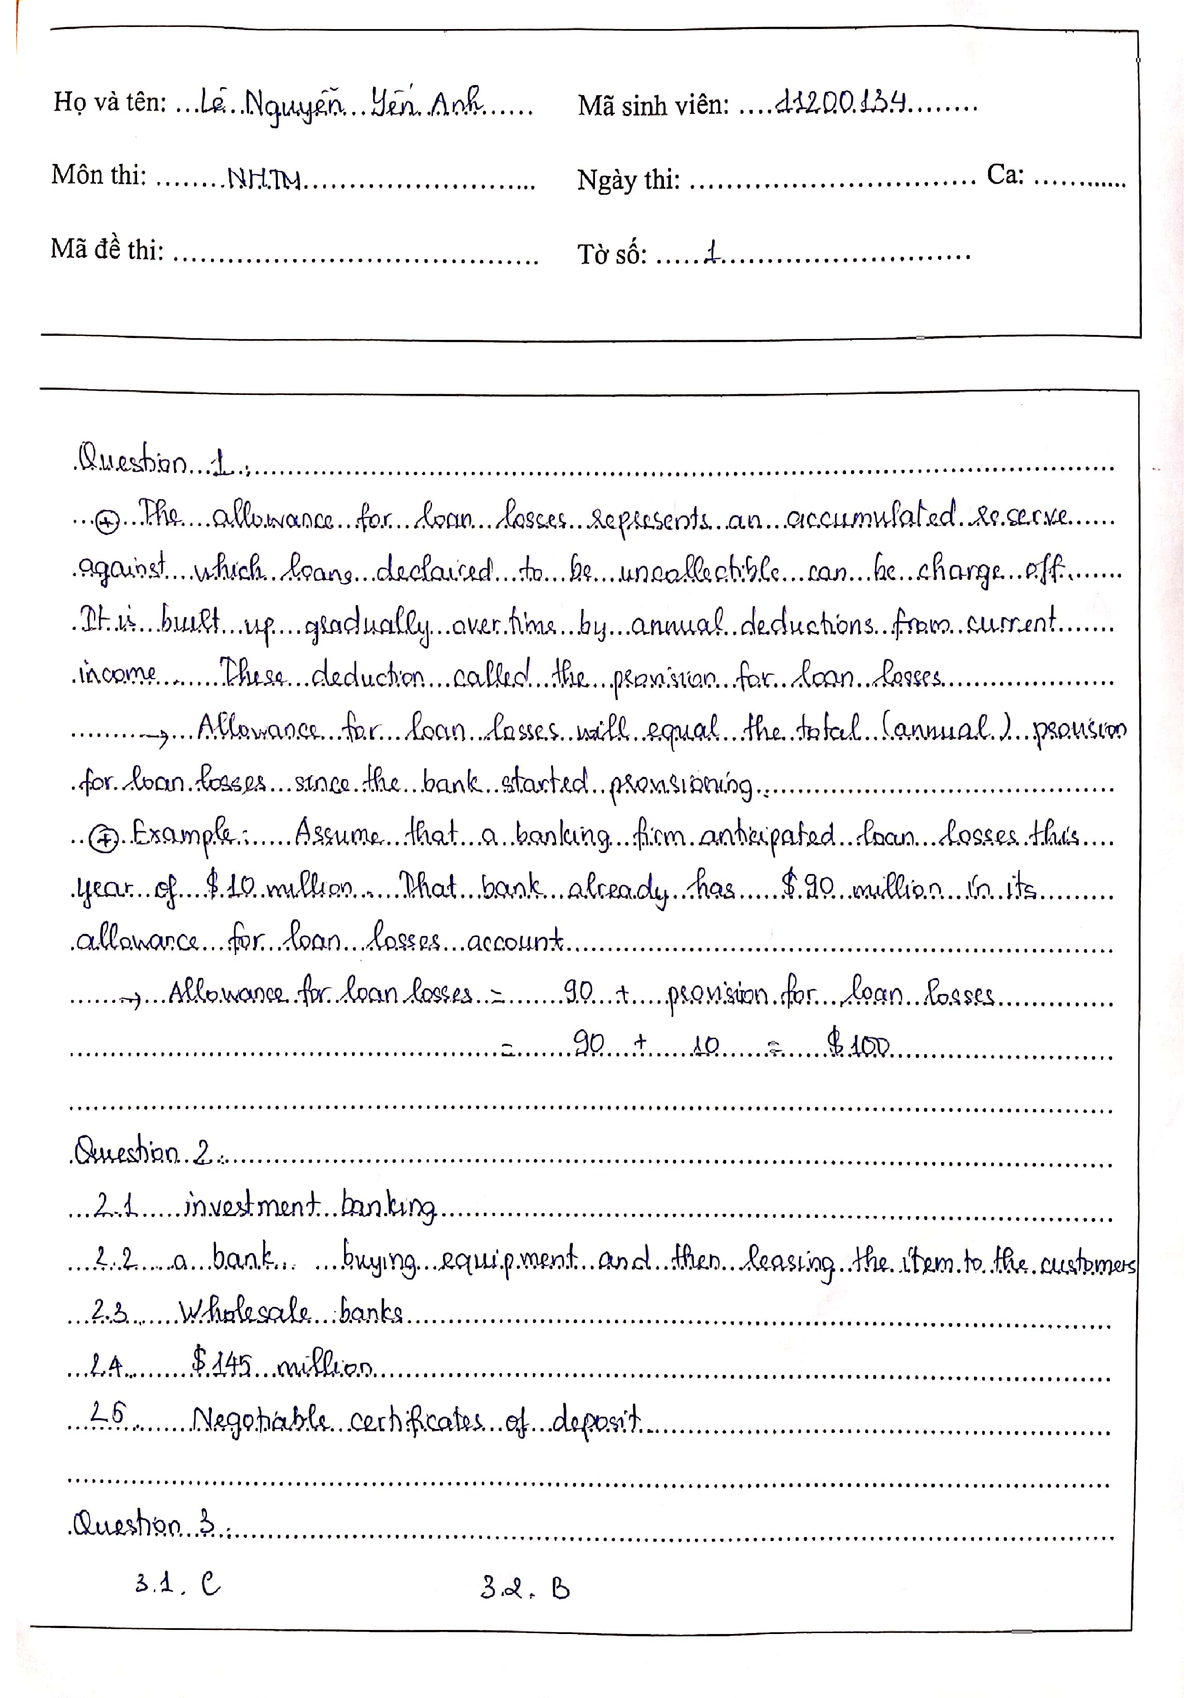 Họ và tên: Lê Nguyễn Yến Anh Mã sinh viên: 11200134
Môn thi: NHTM Ngày thi: Ca:
Mã đề thi: Tờ số: 1
Question 1:
⊕ The allowance for loan losses represents an accumulated reserve
against which loans declaired to be uncollectible can be charge off.
It is built up gradually over time by annual deductions from current
income. These deduction called the provision for loan losses
→ Allowance for loan losses will equal the total (annual) provision
for loan losses since the bank started provisioning.
⊕ Example: Assume that a banking firm anticipated loan losses this
year of $10 million. That bank already has $90 million in its
allowance for loan losses account
→ Allowance for loan losses = 90 + provision for loan losses
= 90 + 10 = $100
Question 2:
2.1 investment banking
2.2 a bank buying equipment and then leasing the item to the customers
2.3 Wholesale banks
2.4 $145 million
2.5 Negotiable certificates of deposit
Question 3:
3.1. C 3.2. B